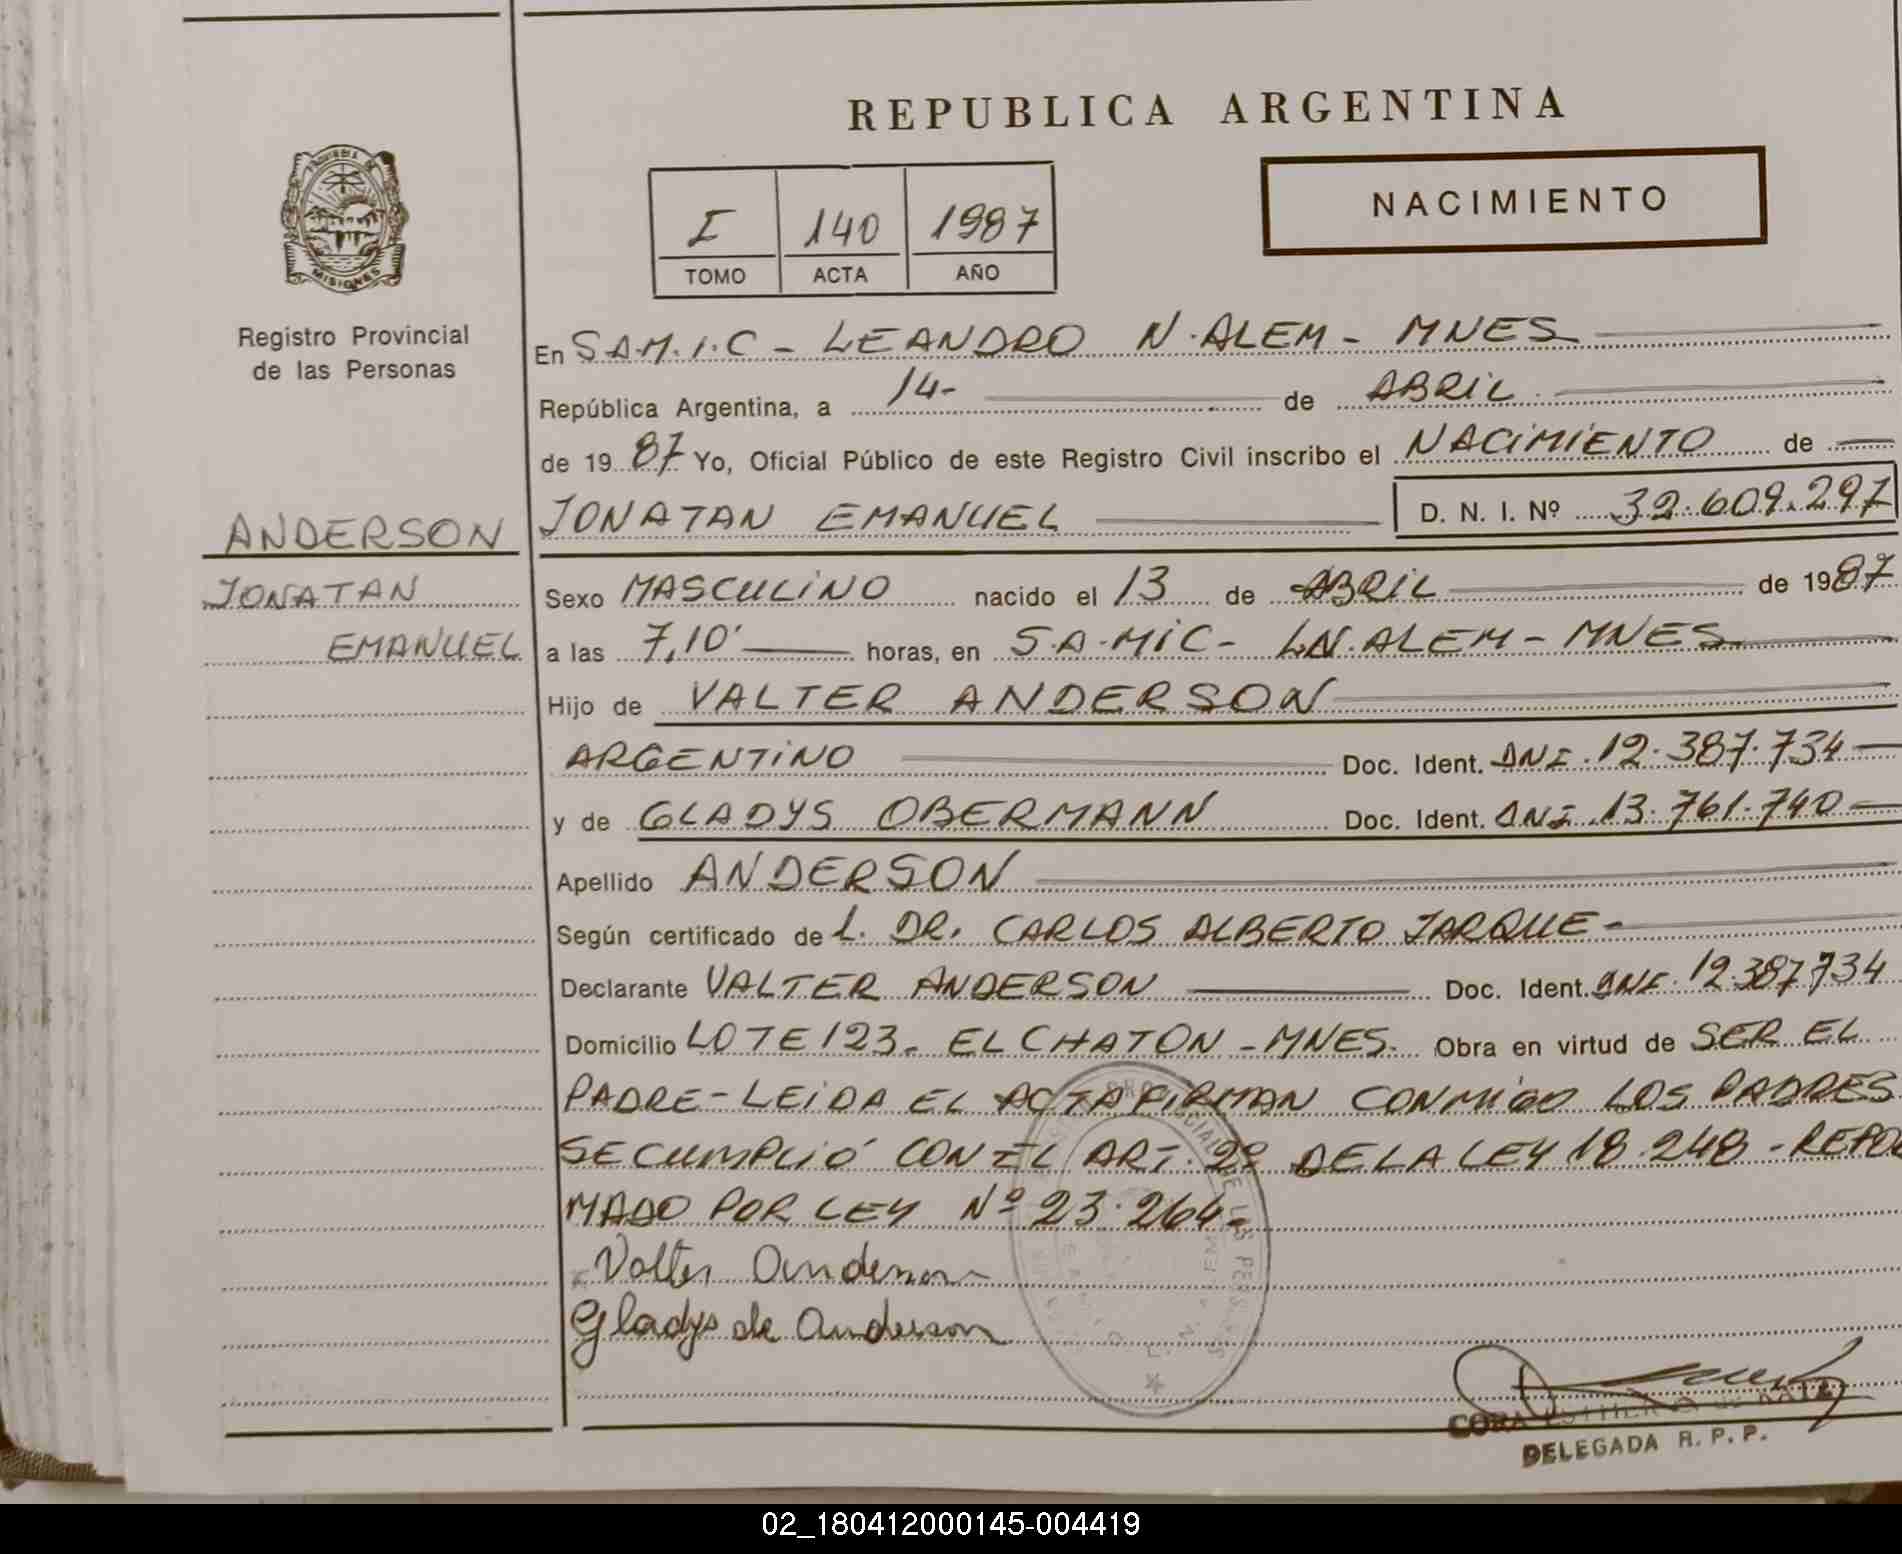 REPUBLICA ARGENTINA
NACIMIENTO
I 140 1987
TOMO ACTA AÑO
PROVINCIA DE
MISIONES
Registro Provincial
de las Personas
ANDERSON
JONATAN
EMANUEL
En S.A.M.I.C - LEANDRO N. ALEM - MNES
República Argentina, a 14- de ABRIL
de 1987 Yo, Oficial Público de este Registro Civil inscribo el NACIMIENTO de
JONATAN EMANUEL D. N. I. Nº 32.609.297
Sexo MASCULINO nacido el 13 de ABRIL de 1987
a las 7,10' horas, en S.A.MIC- LN.ALEM - MNES
Hijo de VALTER ANDERSON
ARGENTINO Doc. Ident. DNI. 12.387.734
y de GLADYS OBERMANN Doc. Ident. DNI. 13.761.740
Apellido ANDERSON
Según certificado de l. DR. CARLOS ALBERTO JARQUE-
Declarante VALTER ANDERSON Doc. Ident. DNI. 12.387.734
Domicilio LOTE 123- EL CHATON - MNES. Obra en virtud de SER EL
PADRE - LEIDA EL ACTA FIRMAN CONMIGO LOS PADRES
SE CUMPLIÓ CON EL ART. 2º DE LA LEY 18.248 - REFOR
MADO POR LEY Nº 23.264-
Valter Anderson
Gladys de Anderson
DELEGADA R. P. P.
02_180412000145-004419